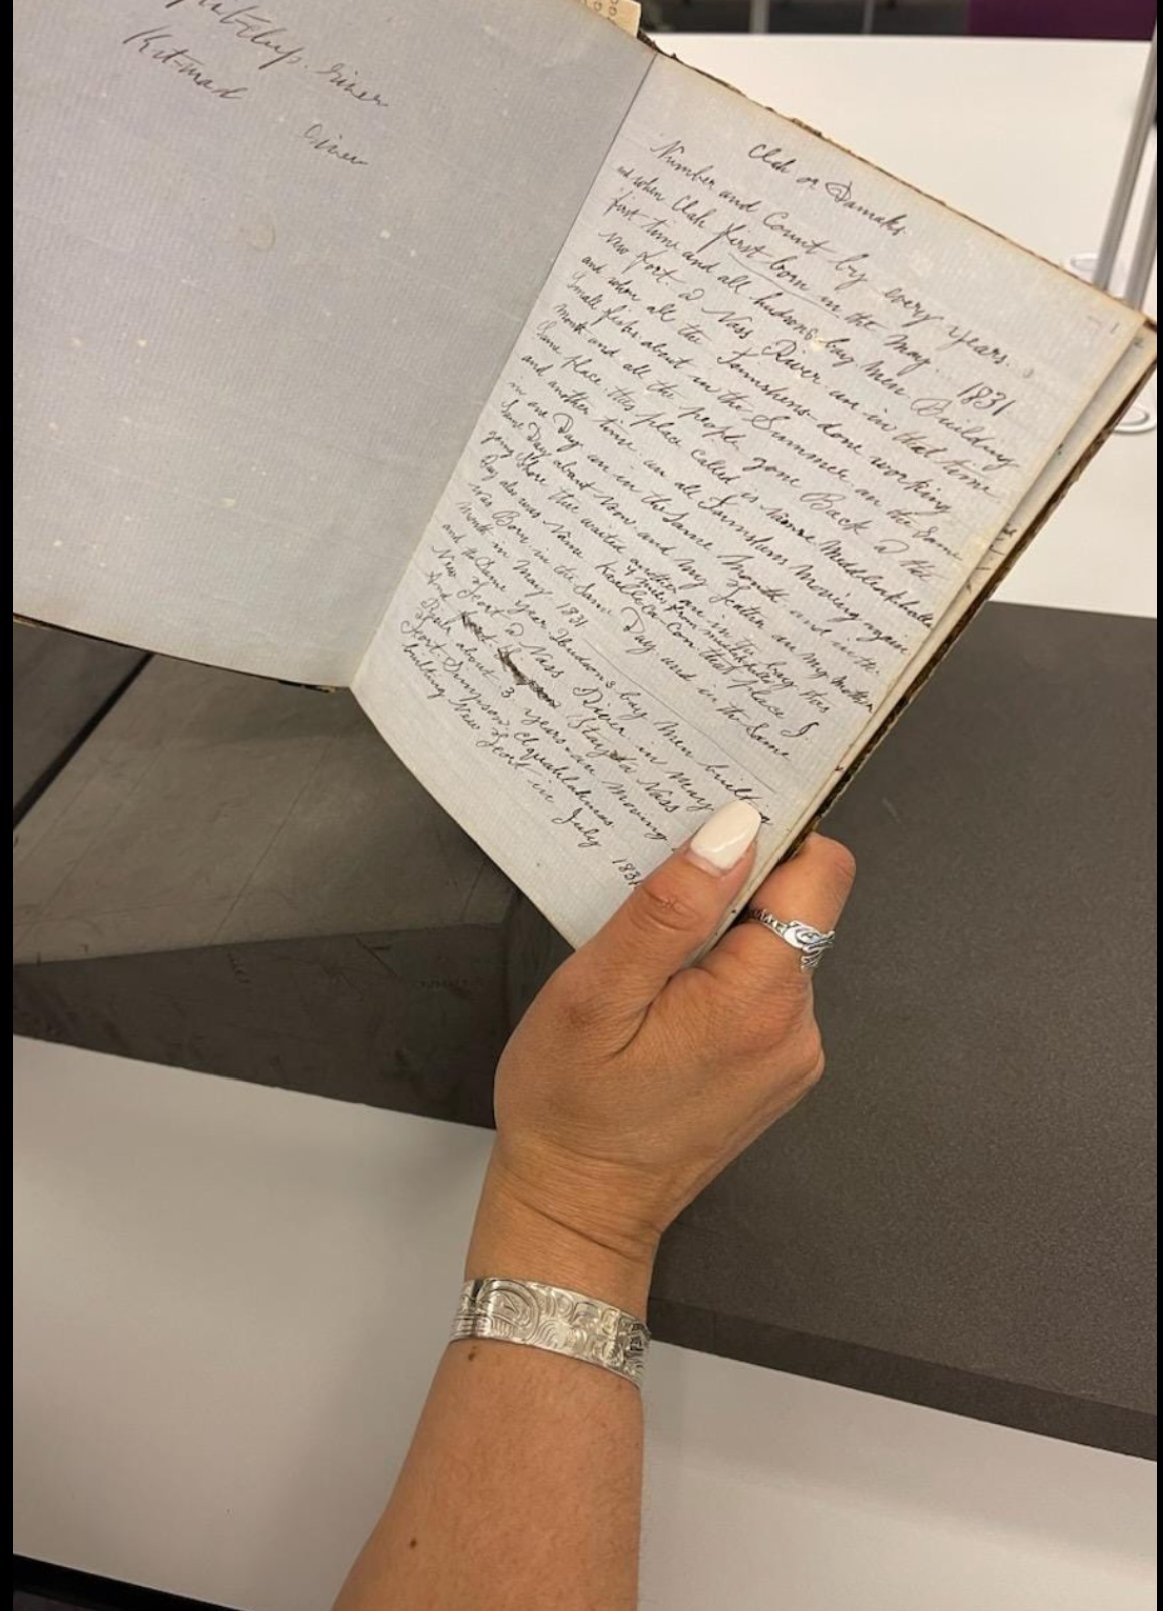 river
Kit-mad river
Clah or Damaks
Number and Count by every years.
and when Clah first born in the May. 1831
first time and all hudsons bay Men Building
New fort. a Nass River are in that time
and when all the Tsimshens done working
Small fishes about in the Summer an the Same
Month and all the people gone Back a the
Same place. this place called is name
and another time an all moving again
in one Day an in the Same Month and in the
Same Day about Now. and my feather an my Mother
going Shore thee waited another are in this bay
4 miles from
Day also was Name that place I.
was Born in the Same Day and in the Same
Month in May 1831
and the Same year Hudsons bay Men built a
New Feort a Nass River in May
And Stay a Nass
River about 3 years an moving
Feort-Simpson
building New Feort in July 183